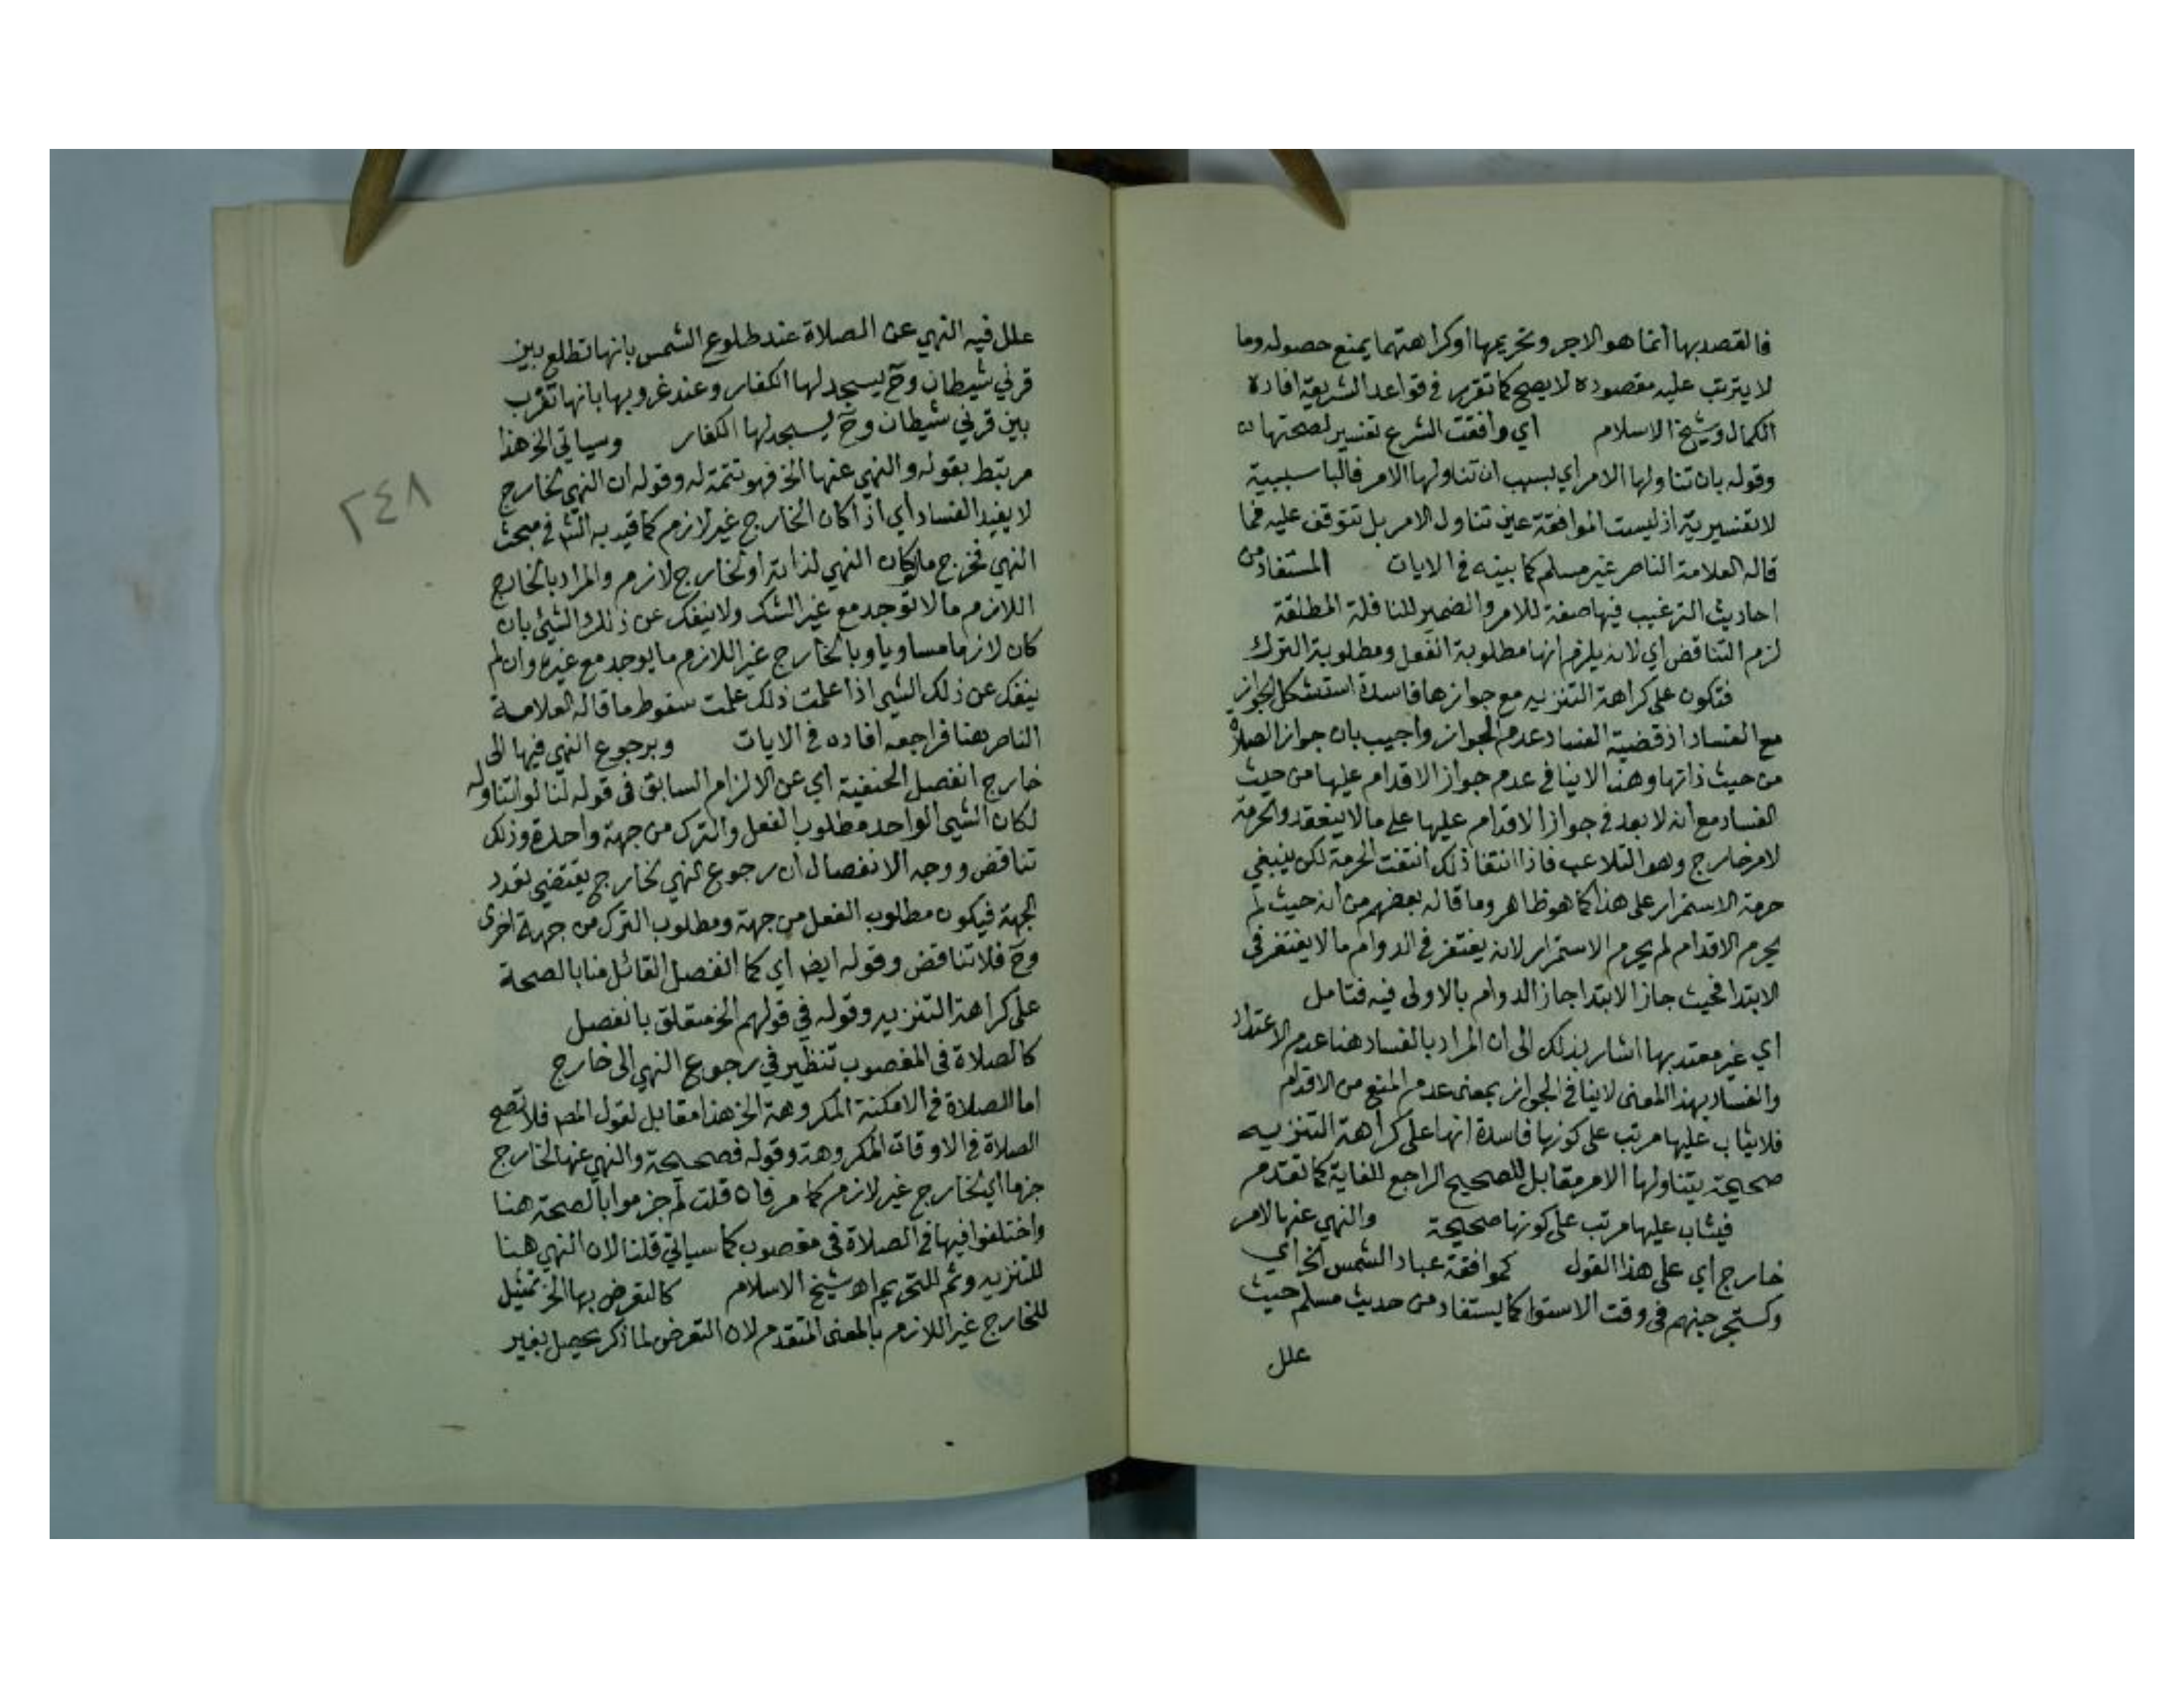 فالقصد بها انما هو الاجر وتحريمها او كراهتهما يمنع حصوله وما
لا يترتب عليه مقصوده لا يصح كما تقرر في قواعد الشريعة افاده
الكمال وشيخ الاسلام اي وافقت الشرع تفسير لصحتها
وقوله بان تناولها الامر اي بسبب ان تناولها الامر فالبا سببية
لا تفسيرية اذ ليست الموافقة عين تناول الامر بل تتوقف عليه فما
قاله العلامة الناصر غير مسلم كما بينه في الايات المستفاد من
احاديث الترغيب فيها صفة للامر والضمير للنافلة المطلقة
لزم التناقض اي لانه يلزم انها مطلوبة الفعل ومطلوبة الترك
فتكون على كراهة التنزيه مع جوازها فاسدة استشكل الجواز
مع الفساد اذ قضية الفساد عدم الجواز واجيب بان جواز الصلاة
من حيث ذاتها وهذا لا ينافي عدم جواز الاقدام عليها من حيث
الفساد مع انه لا بعد في جواز الاقدام عليها على ما لا ينعقد والحرمة
لامر خارج وهو التلاعب فاذا انتفا ذلك انتفت الحرمة لكن ينبغي
حرمة الاستمرار على هذا كما هو ظاهر وما قاله بعضهم من انه حيث لم
يحرم الاقدام لم يحرم الاستمرار لانه يغتفر في الدوام ما لا يغتفر في
الابتدا فحيث جاز الابتدا جاز الدوام بالاولى فيه فتامل
اي غير معتد بها اشار بذلك الى ان المراد بالفساد هنا عدم الاعتداد
والفساد بهذا المعنى لا ينافي الجواز بمعنى عدم المنع من الاقدام
فلا يثاب عليها مرتب على كونها فاسدة انها على كراهة التنزيه
صحيحة يتناولها الامر مقابل للصحيح الراجع للغاية كما تقدم
فيثاب عليها مرتب على كونها صحيحة والنهي عنها لامر
خارج اي على هذا القول كموافقة عباد الشمس الخ اي
وكتسجر جهنم في وقت الاستوا كما يستفاد من حديث مسلم حيث
علل
علل فيه النهي عن الصلاة عند طلوع الشمس بانها تطلع بين
قرني شيطان وح يسجد لها الكفار وعند غروبها بانها تغرب
بين قرني شيطان وح يسجد لها الكفار وسياتي الخ هذا
مرتبط بقوله والنهي عنها الخ فهو تتمة له وقوله ان النهي لخارج
لا يفيد الفساد اي اذا كان الخارج غير لازم كما قيد به الش في مبحث
النهي فخرج ما لو كان النهي لذاته او لخارج لازم والمراد بالخارج
اللازم ما لا توجد مع غير الشك ولا ينفك عن ذلك الشيئ بان
كان لازما مساويا وبالخارج غير اللازم ما يوجد مع غيره وان لم
ينفك عن ذلك الشيى اذا علمت ذلك علمت سقوط ما قاله العلامة
الناصر هنا فراجعه افاده في الايات وبرجوع النهي فيها الى
خارج انفصل الحنفية اي عن الالزام السابق في قوله لنا لو تناوله
لكان الشيى الواحد مطلوب الفعل والترك من جهة واحدة وذلك
تناقض ووجه الانفصال ان رجوع النهي لخارج يقتضي تعدد
الجهة فيكون مطلوب الفعل من جهة ومطلوب الترك من جهة اخرى
وح فلا تناقض وقوله ايضا اي كما انفصل القائل منا بالصحة
على كراهة التنزيه وقوله في قولهم الخ متعلق بانفصل
كالصلاة في المغصوب تنظير في رجوع النهي الى خارج
اما الصلاة في الامكنة المكروهة الخ هذا مقابل لقول المص فلا تصح
الصلاة في الاوقات المكروهة وقوله فصحيحة والنهي عنها لخارج
جزما اي لخارج غير لازم كما مر فان قلت لم جزموا بالصحة هنا
واختلفوا فيها في الصلاة في مغصوب كما سياتي قلنا لان النهي هنا
للتنزيه وثم للتحريم اه شيخ الاسلام كالتعرض بها الخ تمثيل
للخارج غير اللازم بالمعنى المتقدم لان التعرض لما ذكر يحصل بغير
٢٤٨